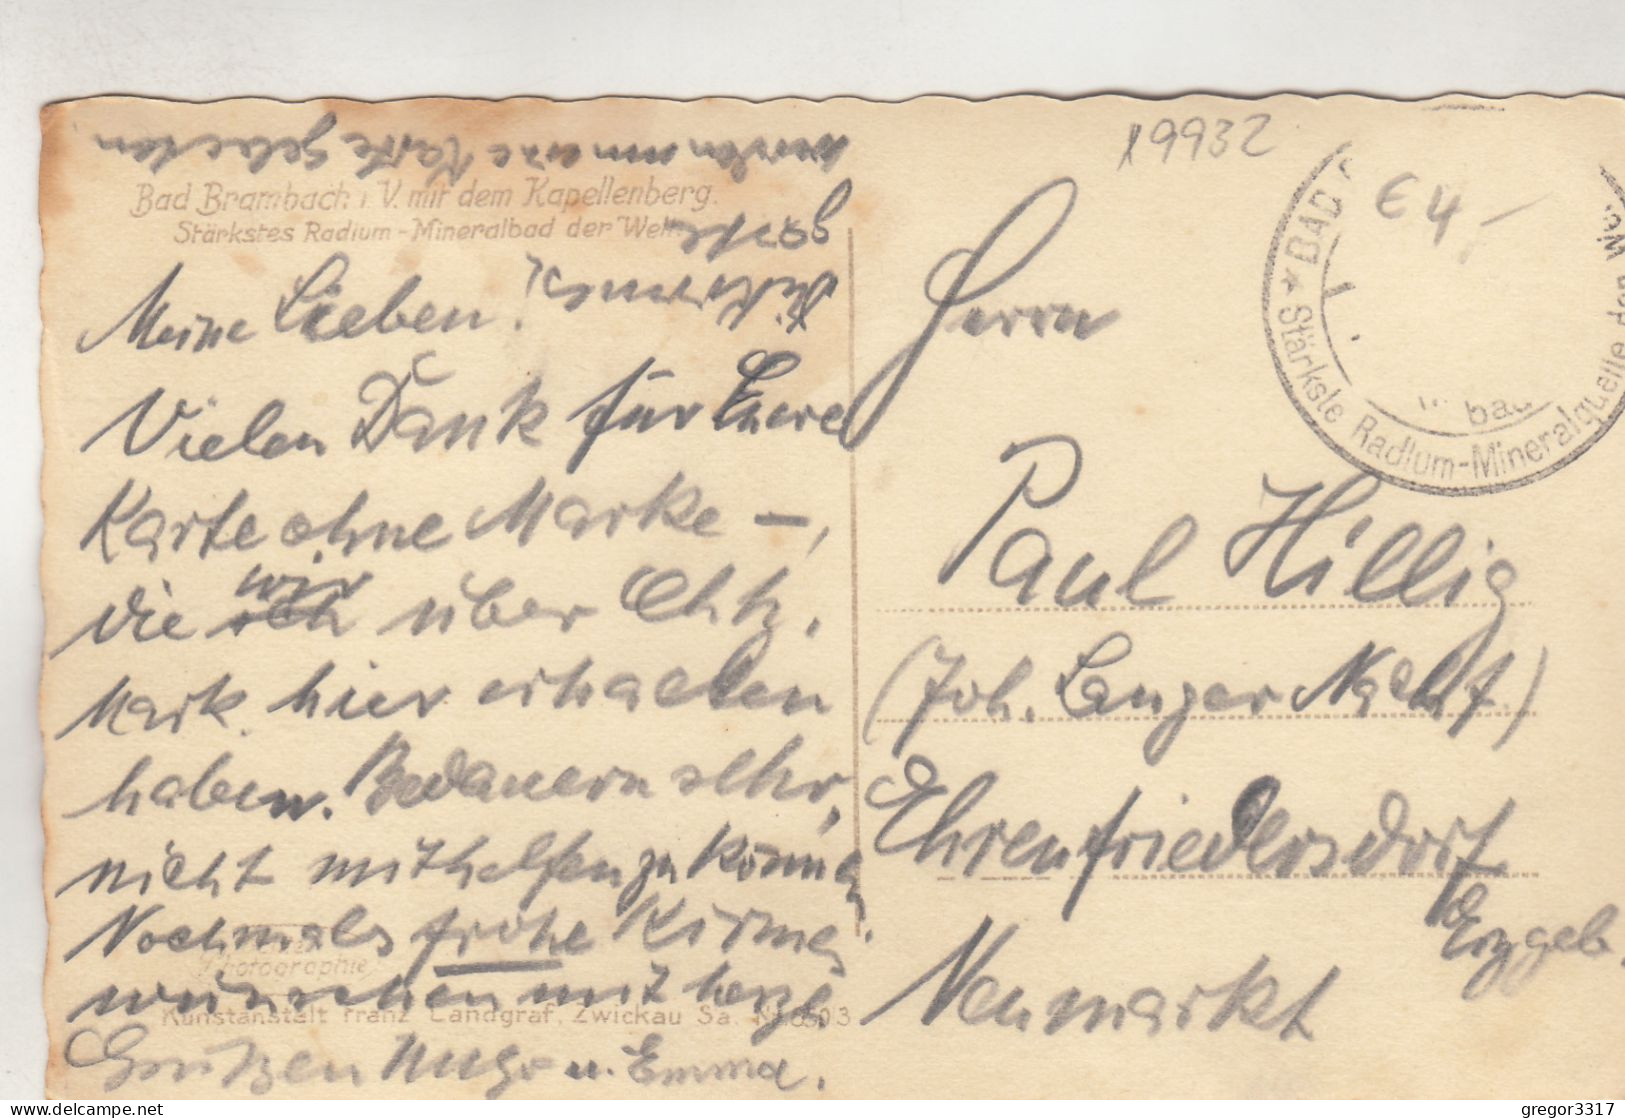 19932
€ 4,-
* BAD
Stärkste Radium-Mineralquelle der Wel
Bad Brambach i. V. mit dem Kapellenberg.
Stärkstes Radium-Mineralbad der Welt.
Meine Lieben!
Vielen Dank für Eure
Karte ohne Marke –,
die wir über
Mark. hier erhalten
haben. Bedauern sehr,
nicht mithelfen zu können
Nochmals frohe Kirmes
wünschen mit herzl.
Grützen Hugo u. Emma.
die Kirmes
Gäste
wurden um eine Karte gebeten
Photographie
Kunstanstalt Franz Landgraf, Zwickau Sa.
Herrn
Paul Hillig
(Joh. Langer Nachf.)
Ehrenfriedersdorf
Erzgeb.
Neumarkt
gregor3317